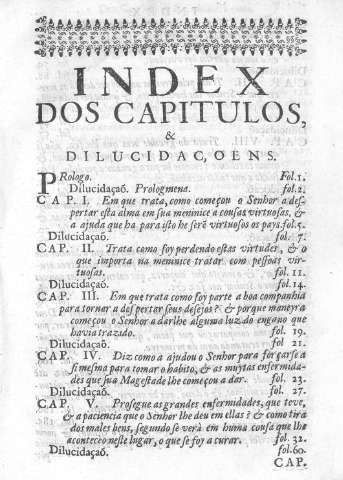 INDEX
DOS CAPITULOS,
&
DILUCIDAC,OENS.
PRologo. Fol.1.
Dilucidaçaõ. Prologmena. fol.2.
CAP. I. Em que trata, como começou o Senhor a des-
pertar esta alma em sua meninice a cousas virtuosas, &
a ajuda que ha para isto he serẽ virtuosos os pays. fol.5.
Dilucidaçaõ. fol. 7.
CAP. II. Trata como foy perdendo estas virtudes, & o
que importa na meninice tratar com pessoas vir-
tuosas. fol. 11.
Dilucidaçaõ. fol.14.
CAP. III. Em que trata como foy parte a boa companhia
para tornar a despertar seus desejos? & porque maneyra
começou o Senhor a darlhe alguma luz do engano que
havia trazido. fol. 19.
Dilucidaçaõ. fol 21.
CAP. IV. Diz como a ajudou o Senhor para forçarse a
si mesma para tomar o habito, & as muytas enfermida-
des que sua Magestade lhe começou a dar. fol. 23.
Dilucidaçaõ. fol. 27.
CAP. V. Prosegue as grandes enfermidades, que teve,
& a paciencia que o Senhor lhe deu em ellas? & como tira
dos males bens, segundo se verà em huma cousa que lhe
acontecèo neste lugar, o que se foy a curar. fol. 32.
Dilucidaçaõ. fol.60.
CAP.